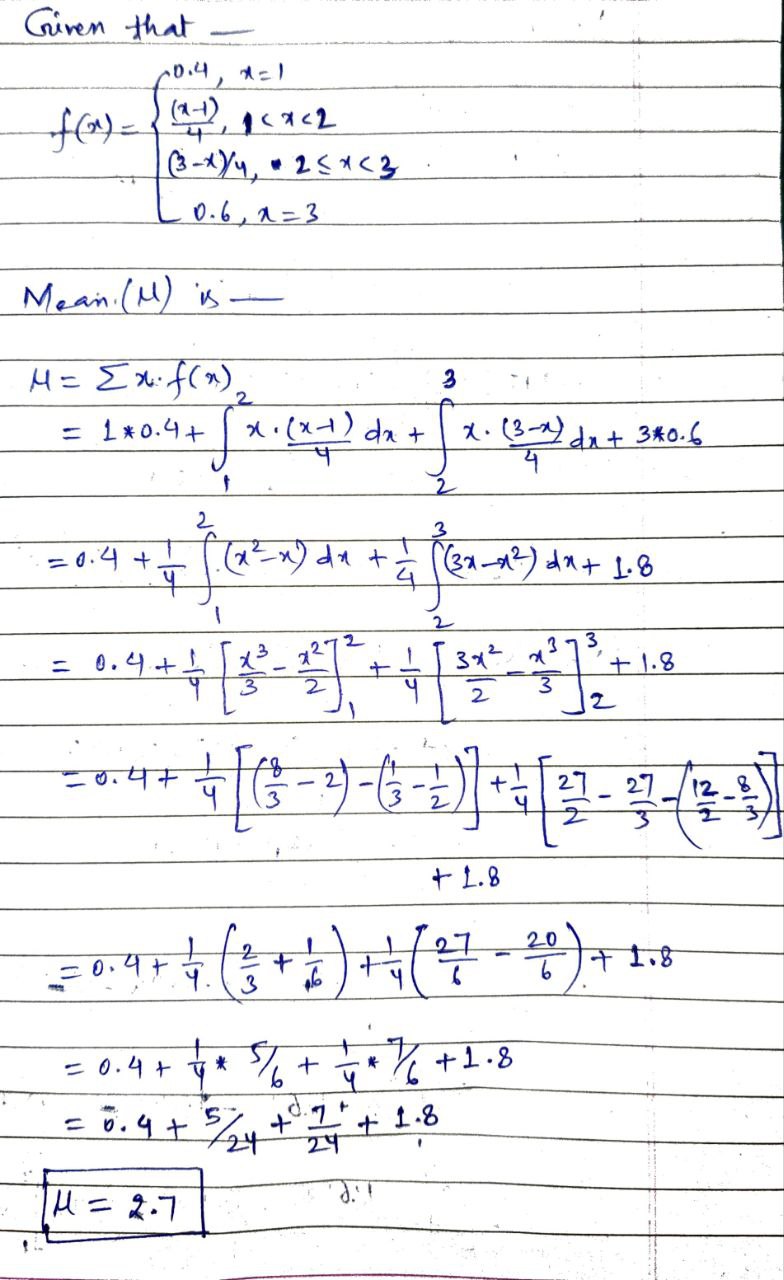 Given that —
f(x) = { 0.4, x=1
(x-1)/4, 1<x<2
(3-x)/4, 2≤x<3
0.6, x=3
Mean (μ) is —
μ = Σ x.f(x)
= 1*0.4 + ∫₁² x.(x-1)/4 dx + ∫₂³ x.(3-x)/4 dx + 3*0.6
= 0.4 + 1/4 ∫₁² (x²-x) dx + 1/4 ∫₂³ (3x-x²) dx + 1.8
= 0.4 + 1/4 [x³/3 - x²/2]₁² + 1/4 [3x²/2 - x³/3]₂³ + 1.8
= 0.4 + 1/4 [(8/3 - 2) - (1/3 - 1/2)] + 1/4 [27/2 - 27/3 - (12/2 - 8/3)]
+ 1.8
= 0.4 + 1/4 (2/3 + 1/6) + 1/4 (27/6 - 20/6) + 1.8
= 0.4 + 1/4 * 5/6 + 1/4 * 7/6 + 1.8
= 0.4 + 5/24 + 7/24 + 1.8
μ = 2.7